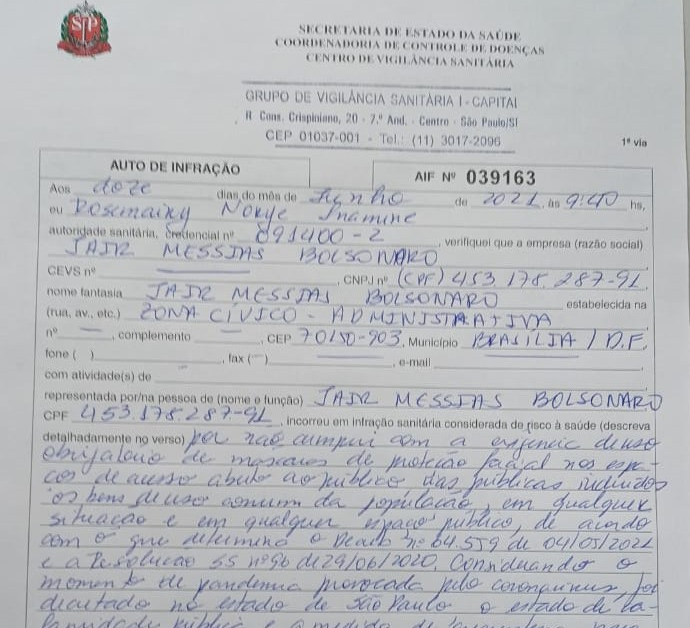 SECRETARIA DE ESTADO DA SAÚDE
COORDENADORIA DE CONTROLE DE DOENÇAS
CENTRO DE VIGILÂNCIA SANITÁRIA
GRUPO DE VIGILÂNCIA SANITÁRIA I - CAPITAL
R Cons. Crispiniano, 20 - 7.º And. - Centro - São Paulo/S
CEP 01037-001 - Tel.: (11) 3017-2096
1ª via
AUTO DE INFRAÇÃO
AIF Nº 039163
Aos doze dias do mês de Junho de 2021, às 9:40 hs,
eu Rosemairy Inamine
autoridade sanitária, Credencial nº 891400-2, verifiquei que a empresa (razão social)
JAIR MESSIAS BOLSONARO
CEVS nº , CNPJ nº (CPF) 453.178.287-91
nome fantasia JAIR MESSIAS BOLSONARO estabelecida na
(rua, av., etc.) ZONA CÍVICO-ADMINISTRATIVA
nº , complemento , CEP 70150-903, Município BRASÍLIA / D.F.
fone ( ) , fax ( ) , e-mail
com atividade(s) de
representada por/na pessoa de (nome e função) JAIR MESSIAS BOLSONARO
CPF 453.178.287-91, incorreu em infração sanitária considerada de risco à saúde (descreva
detalhadamente no verso) por não cumprir com a exigência de uso
obrigatório de máscaras de proteção facial nos espa-
ços de acesso aberto ao público das públicas incluidos
os bens de uso comum da população, em qualquer
situação e em qualquer espaço público, de acordo
com o que determina o Decreto nº 64.959 de 04/05/2021
e a Resolução SS nº 96 de 29/06/2020. Considerando o
momento de pandemia provocada pelo coronavirus, foi
decretado no estado de São Paulo o estado de ca-
lamidade pública e a medida de